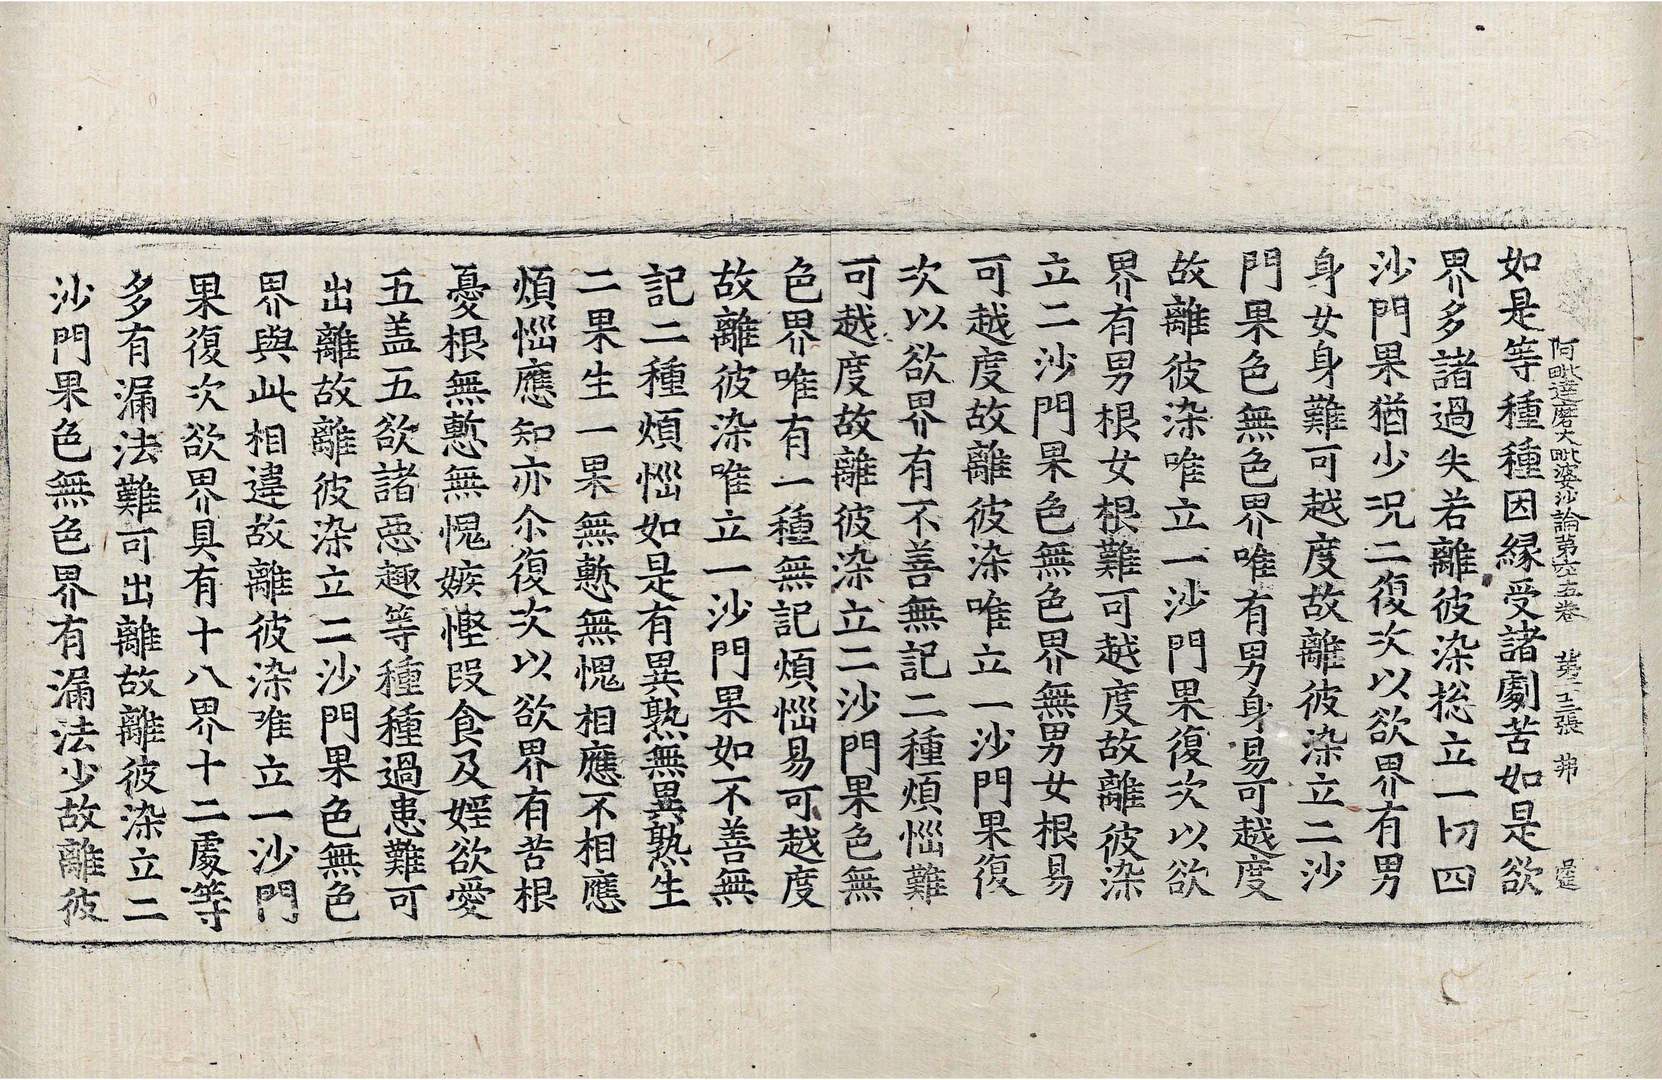 阿毗達磨大毗婆沙論第六十五卷 第十三張 弗
如是等種種因緣受諸劇苦如是欲
界多諸過失若離彼染捴立一切四
沙門果猶少况二復次以欲界有男
身女身難可越度故離彼染立二沙
門果色無色界唯有男身易可越度
故離彼染唯立一沙門果復次以欲
界有男根女根難可越度故離彼染
立二沙門果色無色界無男女根易
可越度故離彼染唯立一沙門果復
次以欲界有不善無記二種煩惱難
可越度故離彼染立二沙門果色無
色界唯有一種無記煩惱易可越度
故離彼染唯立一沙門果如不善無
記二種煩惱如是有異熟無異熟生
二果生一果無慙無愧相應不相應
煩惱應知亦尒復次以欲界有苦根
憂根無慙無愧嫉慳段食及婬欲愛
五盖五欲諸惡趣等種種過患難可
出離故離彼染立二沙門果色無色
界與此相違故離彼染唯立一沙門
果復次欲界具有十八界十二處等
多有漏法難可出離故離彼染立二
沙門果色無色界有漏法少故離彼